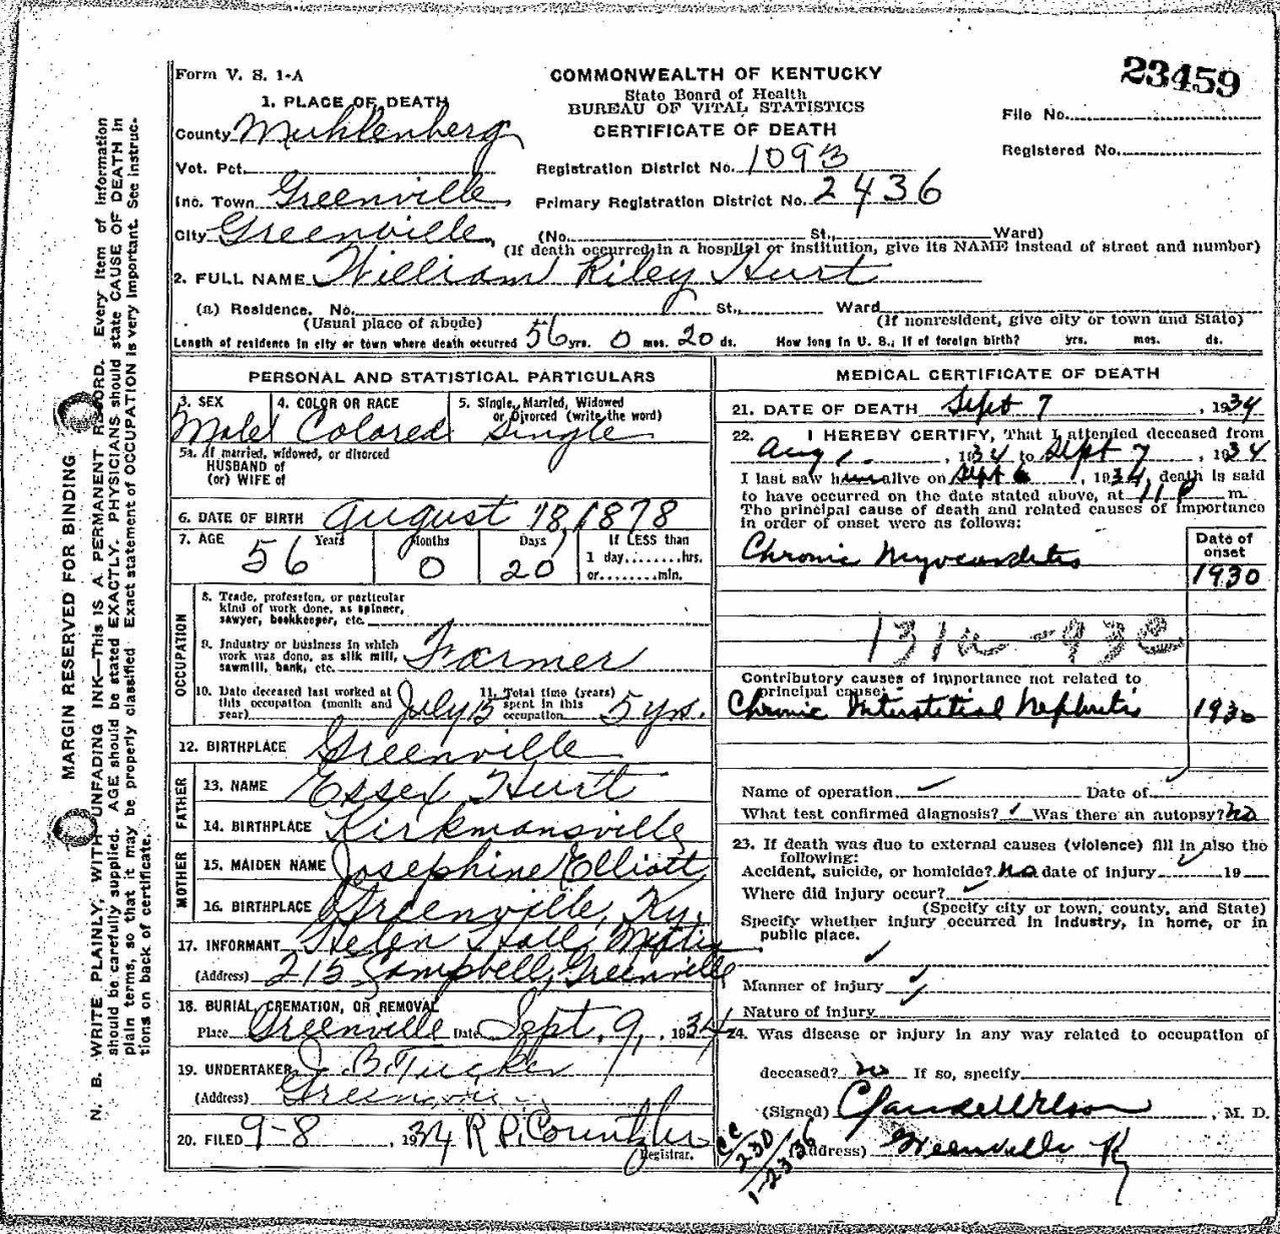 23459
Form V. S. 1-A
COMMONWEALTH OF KENTUCKY
State Board of Health
BUREAU OF VITAL STATISTICS
CERTIFICATE OF DEATH
File No.
Registered No.
1. PLACE OF DEATH
County Muhlenberg
Vot. Pct.
Inc. Town Greenville
City Greenville
Registration District No. 1093
Primary Registration District No. 2436
(No. St., Ward)
(If death occurred in a hospital or institution, give its NAME instead of street and number)
2. FULL NAME William Riley Hurt
(a) Residence. No. St., Ward
(Usual place of abode) (If nonresident, give city or town and State)
Length of residence in city or town where death occurred 56 yrs. 0 mos. 20 ds. How long in U. S., if of foreign birth? yrs. mos. ds.
PERSONAL AND STATISTICAL PARTICULARS
3. SEX 4. COLOR OR RACE 5. Single, Married, Widowed
or Divorced (write the word)
Male Colored Single
5a. If married, widowed, or divorced
HUSBAND of
(or) WIFE of
6. DATE OF BIRTH August 18, 1878
7. AGE Years Months Days If LESS than
56 0 20 1 day........hrs.
or........min.
OCCUPATION
8. Trade, profession, or particular
kind of work done, as spinner,
sawyer, bookkeeper, etc.
9. Industry or business in which
work was done, as silk mill,
sawmill, bank, etc. Farmer
10. Date deceased last worked at
this occupation (month and
year) July 15
11. Total time (years)
spent in this
occupation 5 yrs.
12. BIRTHPLACE Greenville
FATHER
13. NAME Essex Hurt
14. BIRTHPLACE Kirkmansville
MOTHER
15. MAIDEN NAME Josephine Elliott
16. BIRTHPLACE Greenville, Ky.
17. INFORMANT Helen Hall
(Address) 215 Campbell, Greenville
18. BURIAL, CREMATION, OR REMOVAL
Place Greenville Date Sept. 9, 1934
19. UNDERTAKER J. B. Tucker
(Address)
20. FILED 9-8, 1934 R P.
Registrar.
MEDICAL CERTIFICATE OF DEATH
21. DATE OF DEATH Sept 7, 1934
22. I HEREBY CERTIFY, That I attended deceased from
Aug 1, 1934 to Sept 7, 1934
I last saw him alive on Sept 6, 1934, death is said
to have occurred on the date stated above, at 11 P m.
The principal cause of death and related causes of importance
in order of onset were as follows:
Date of
onset
Chronic Myocarditis 1930
131a - 93c
Contributory causes of importance not related to
principal cause:
Chronic Interstitial Nephritis 1930
Name of operation Date of
What test confirmed diagnosis? Was there an autopsy? no
23. If death was due to external causes (violence) fill in also the
following:
Accident, suicide, or homicide? no date of injury 19
Where did injury occur?
(Specify city or town, county, and State)
Specify whether injury occurred in industry, in home, or in
public place.
Manner of injury
Nature of injury
24. Was disease or injury in any way related to occupation of
deceased? no If so, specify
(Signed) , M. D.
(Address) Greenville Ky
CC
1-23-36
MARGIN RESERVED FOR BINDING
N. B. WRITE PLAINLY, WITH UNFADING INK—THIS IS A PERMANENT RECORD. Every item of information
should be carefully supplied. AGE should be stated EXACTLY. PHYSICIANS should state CAUSE OF DEATH in
plain terms, so that it may be properly classified. Exact statement of OCCUPATION is very important. See instruc-
tions on back of certificate.